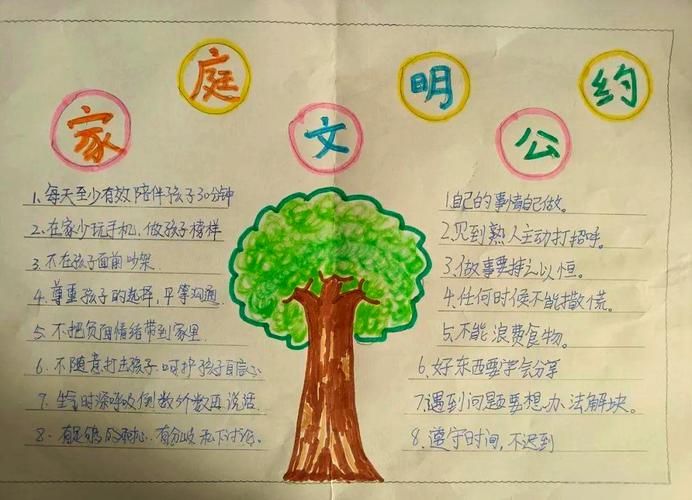 家庭文明公约
1、每天至少有效陪伴孩子30分钟
2、在家少玩手机、做孩子榜样
3、不在孩子面前吵架.
4、尊重孩子的选择,平等沟通.
5、不把负面情绪带到家里.
6、不随意打击孩子、呵护孩子自信心
7、生气时深呼吸倒数个数再说话.
8、有足够的耐心、有分歧私下讨论.
1.自己的事情自己做。
2.见到熟人主动打招呼。
3.做事要持之以恒。
4.任何时候不能撒慌。
5.不能浪费食物。
6.好东西要学会分享
7.遇到问题要想办法解决。
8.遵守时间,不迟到